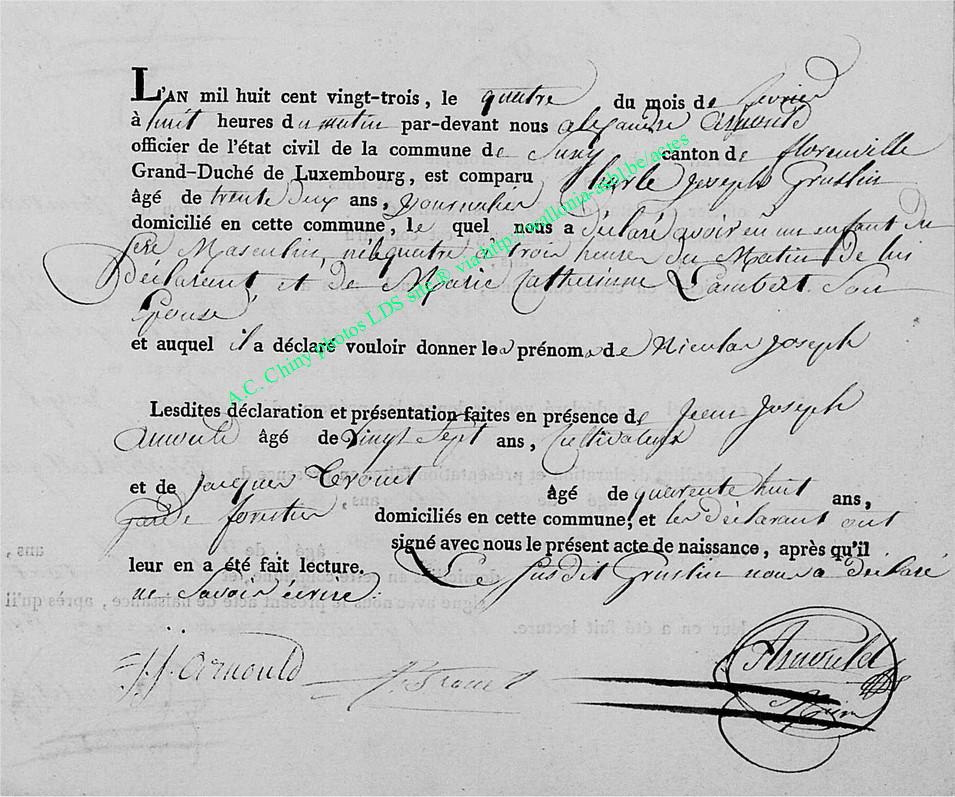 L'AN mil huit cent vingt-trois, le quatre du mois de fevrier
à huit heures du matin par-devant nous alexandre Arnould
officier de l'état civil de la commune de Suxy canton de florenville
Grand-Duché de Luxembourg, est comparu Charle Joseph Gruslin
âgé de trente deux ans, Journalier
domicilié en cette commune, le quel nous a déclaré avoir eu un enfant du
sexe Masculin, né le quatre à trois heures du Matin de lui
Déclarant et de Marie Catherinne Lambert Son
Epouse
et auquel il a déclaré vouloir donner les prénoms de Nicolas Joseph
Lesdites déclaration et présentation faites en présence de Jean Joseph
Arnould âgé de vingt sept ans, Cultivateur
et de Jacques Trouet âgé de quarente huit ans,
Garde forestier domiciliés en cette commune, et les déclarant ont
signé avec nous le présent acte de naissance, après qu'il
leur en a été fait lecture. Le susdit Gruslin nous a declaré
ne Savoir écrire.
J.J. Arnould J. Trouet Arnould
A.C. Chiny photos LDS site® via http:\\wallonia-asbl.be/actes